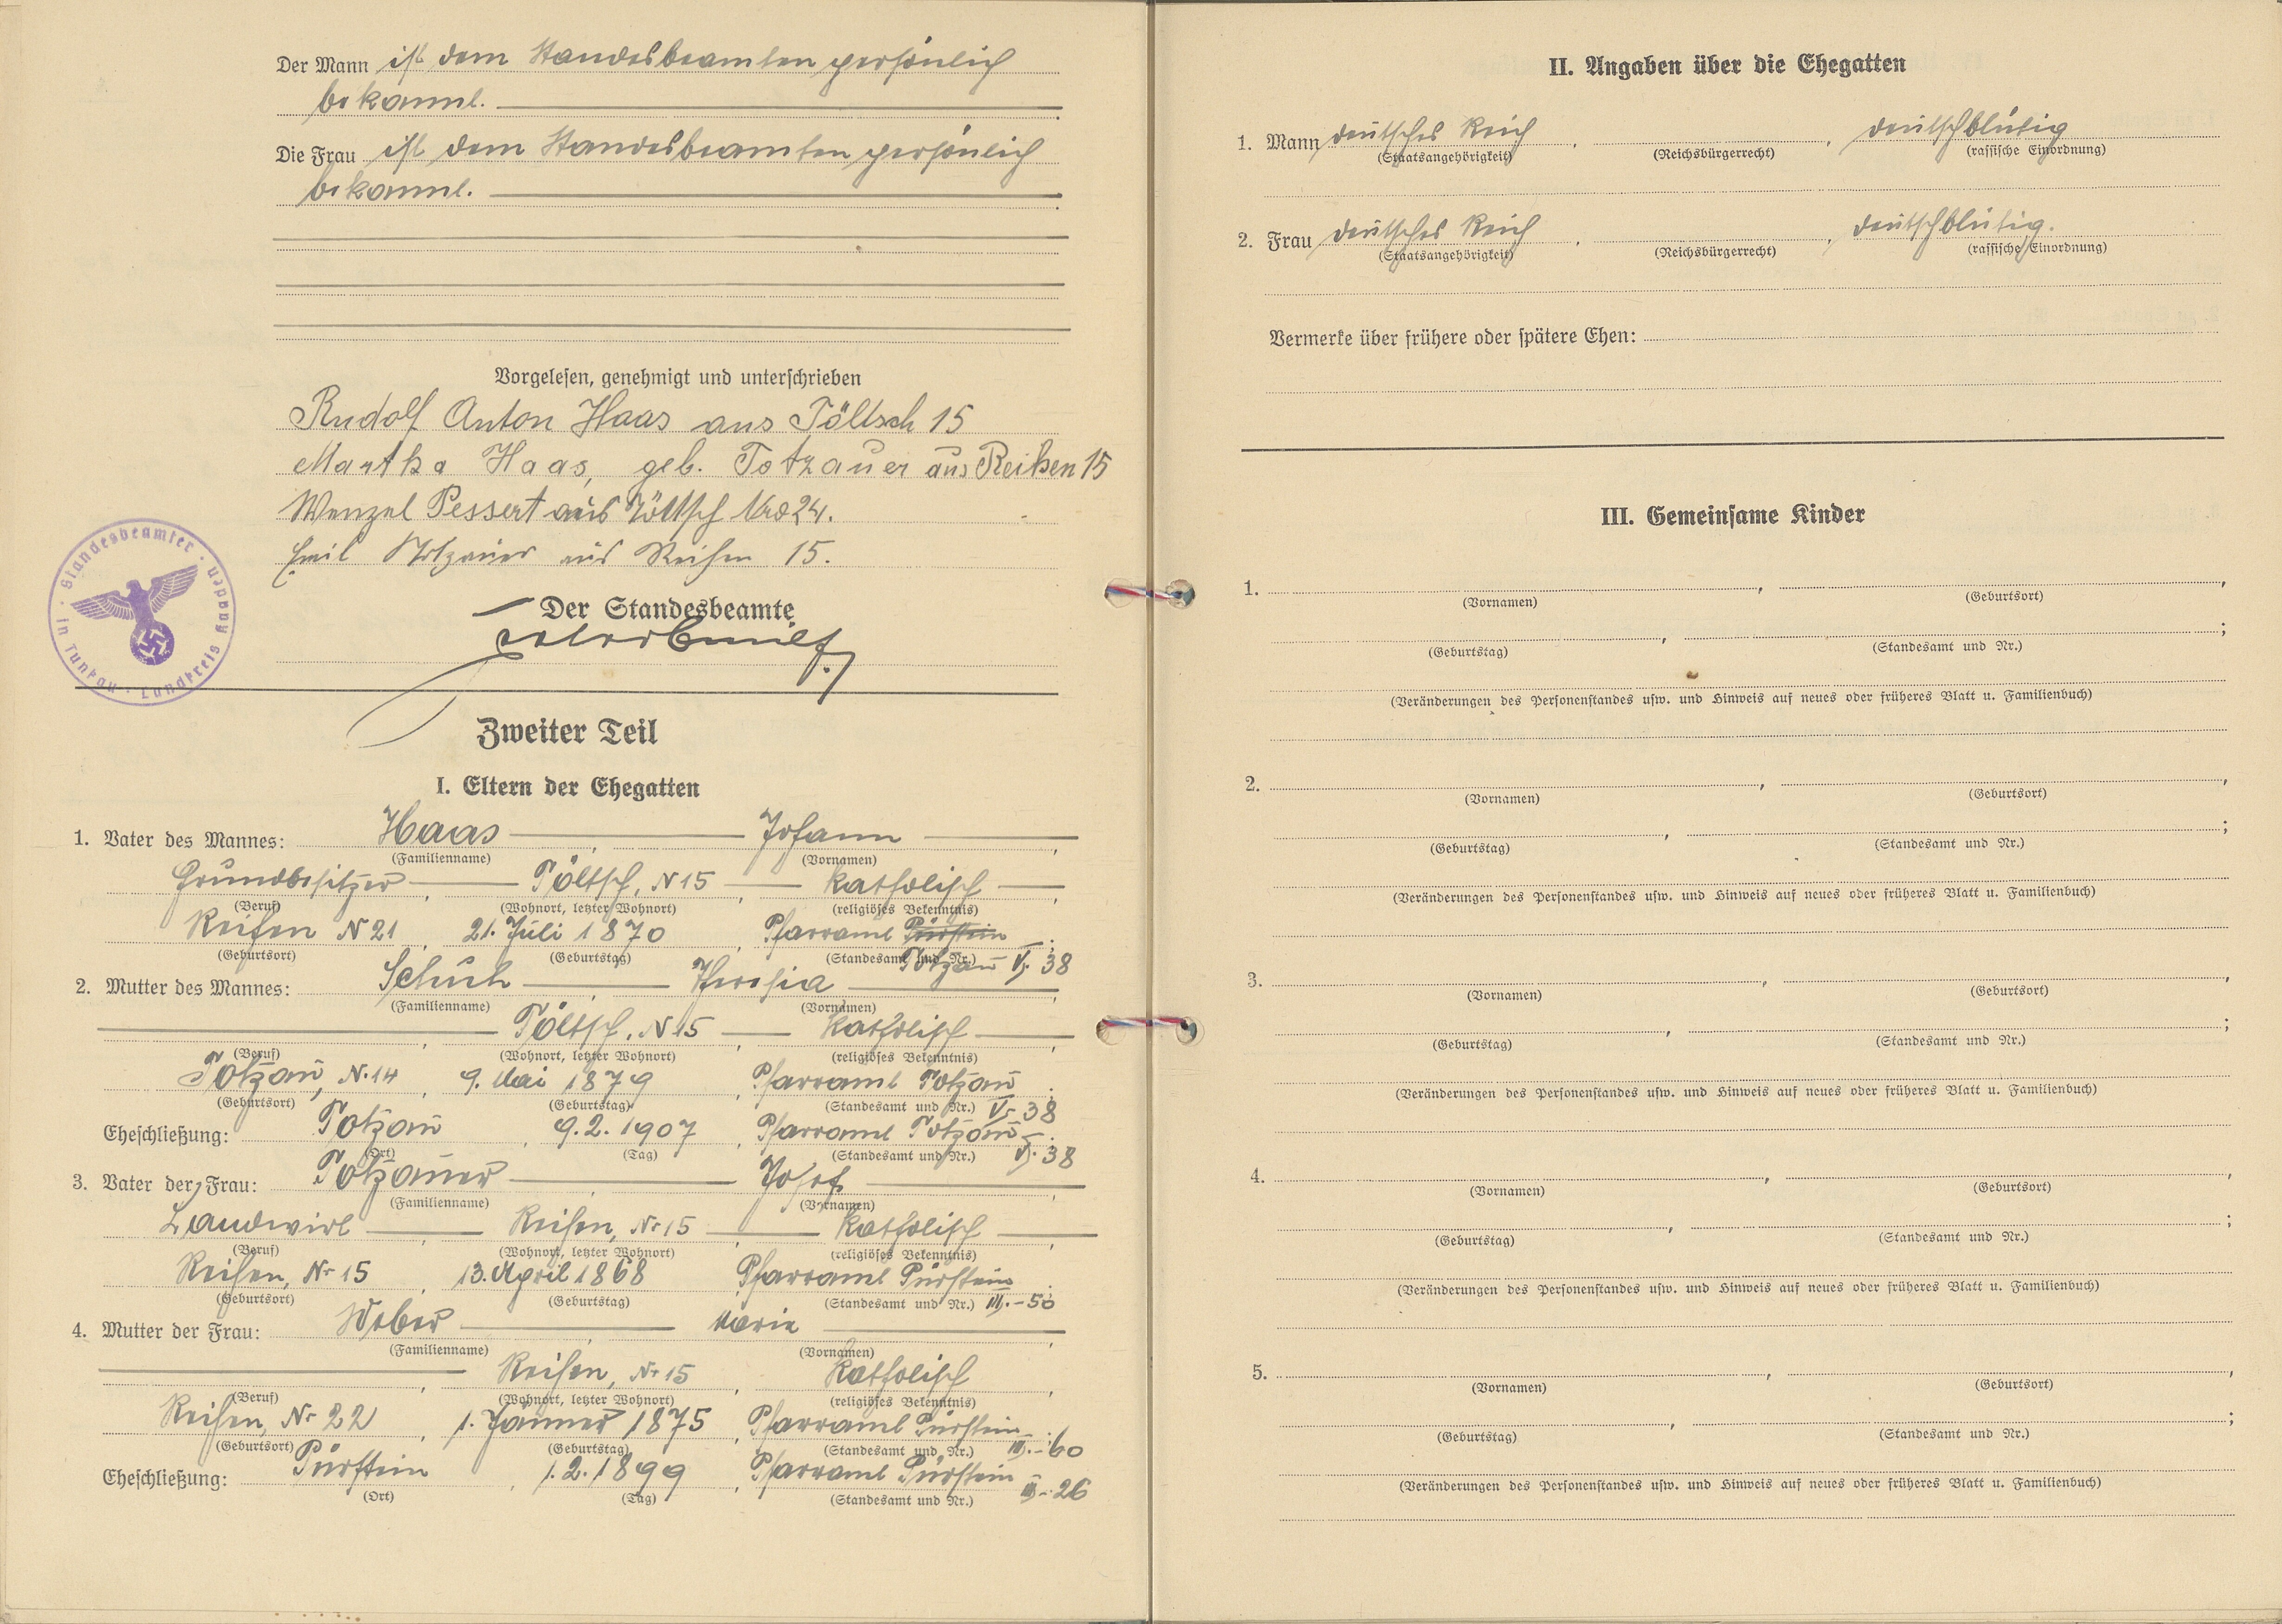 Der Mann ist dem Standesbeamten persönlich
bekannt.
Die Frau ist dem Standesbeamten persönlich
bekannt.
Vorgelesen, genehmigt und unterschrieben
Rudolf Anton Haas aus Töltsch 15
Martha Haas, geb. Totzauer aus Reihen 15
Wenzel Pessert aus Töltsch Nro 24.
Emil Totzauer aus Reihen 15.
Standesbeamter · in Tunkau · Landkreis Kaaden ·
Der Standesbeamte
Zweiter Teil
I. Eltern der Ehegatten
1. Vater des Mannes: Haas, Johann,
(Familienname) (Vornamen)
Grundbesitzer, Töltsch, N 15, katholisch,
(Beruf) (Wohnort, letzter Wohnort) (religiöses Bekenntnis)
Reihen N 21, 21. Juli 1870, Pfarramt Pürstein;
(Geburtsort) (Geburtstag) (Standesamt und Nr.) Totzau V, 38
2. Mutter des Mannes: Schuh, Theresia,
(Familienname) (Vornamen)
Töltsch, N 15, katholisch,
(Beruf) (Wohnort, letzter Wohnort) (religiöses Bekenntnis)
Totzau, N. 14, 9. Mai 1879, Pfarramt Totzau;
(Geburtsort) (Geburtstag) (Standesamt und Nr.) V, 38
Eheschließung: Totzau, 9. 2. 1907, Pfarramt Totzau.
(Ort) (Tag) (Standesamt und Nr.) V, 38
3. Vater der Frau: Totzauer, Josef,
(Familienname) (Vornamen)
Landwirt, Reihen, Nr 15, katholisch,
(Beruf) (Wohnort, letzter Wohnort) (religiöses Bekenntnis)
Reihen, Nr 15, 13. April 1868, Pfarramt Pürstein;
(Geburtsort) (Geburtstag) (Standesamt und Nr.) III. - 50
4. Mutter der Frau: Weber, Marie,
(Familienname) (Vornamen)
Reihen, Nr 15, katholisch,
(Beruf) (Wohnort, letzter Wohnort) (religiöses Bekenntnis)
Reihen, Nr 22, 1. Jänner 1875, Pfarramt Pürstein;
(Geburtsort) (Geburtstag) (Standesamt und Nr.) III. - 60
Eheschließung: Pürstein, 1. 2. 1899, Pfarramt Pürstein
(Ort) (Tag) (Standesamt und Nr.) - 26
II. Angaben über die Ehegatten
1. Mann deutsches Reich, , deutschblütig
(Staatsangehörigkeit) (Reichsbürgerrecht) (rassische Einordnung)
2. Frau deutsches Reich, , deutschblütig.
(Staatsangehörigkeit) (Reichsbürgerrecht) (rassische Einordnung)
Vermerke über frühere oder spätere Ehen:
III. Gemeinsame Kinder
1. , ,
(Vornamen) (Geburtsort)
, ;
(Geburtstag) (Standesamt und Nr.)
(Veränderungen des Personenstandes usw. und Hinweis auf neues oder früheres Blatt u. Familienbuch)
2. , ,
(Vornamen) (Geburtsort)
, ;
(Geburtstag) (Standesamt und Nr.)
(Veränderungen des Personenstandes usw. und Hinweis auf neues oder früheres Blatt u. Familienbuch)
3. , ,
(Vornamen) (Geburtsort)
, ;
(Geburtstag) (Standesamt und Nr.)
(Veränderungen des Personenstandes usw. und Hinweis auf neues oder früheres Blatt u. Familienbuch)
4. , ,
(Vornamen) (Geburtsort)
, ;
(Geburtstag) (Standesamt und Nr.)
(Veränderungen des Personenstandes usw. und Hinweis auf neues oder früheres Blatt u. Familienbuch)
5. , ,
(Vornamen) (Geburtsort)
, ;
(Geburtstag) (Standesamt und Nr.)
(Veränderungen des Personenstandes usw. und Hinweis auf neues oder früheres Blatt u. Familienbuch)